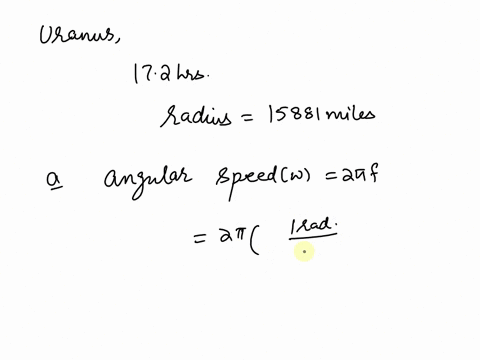 Uranus,
17.2 hrs.
radius = 15881 miles
a angular speed (w) = 2πf
= 2π ( 1 rad.